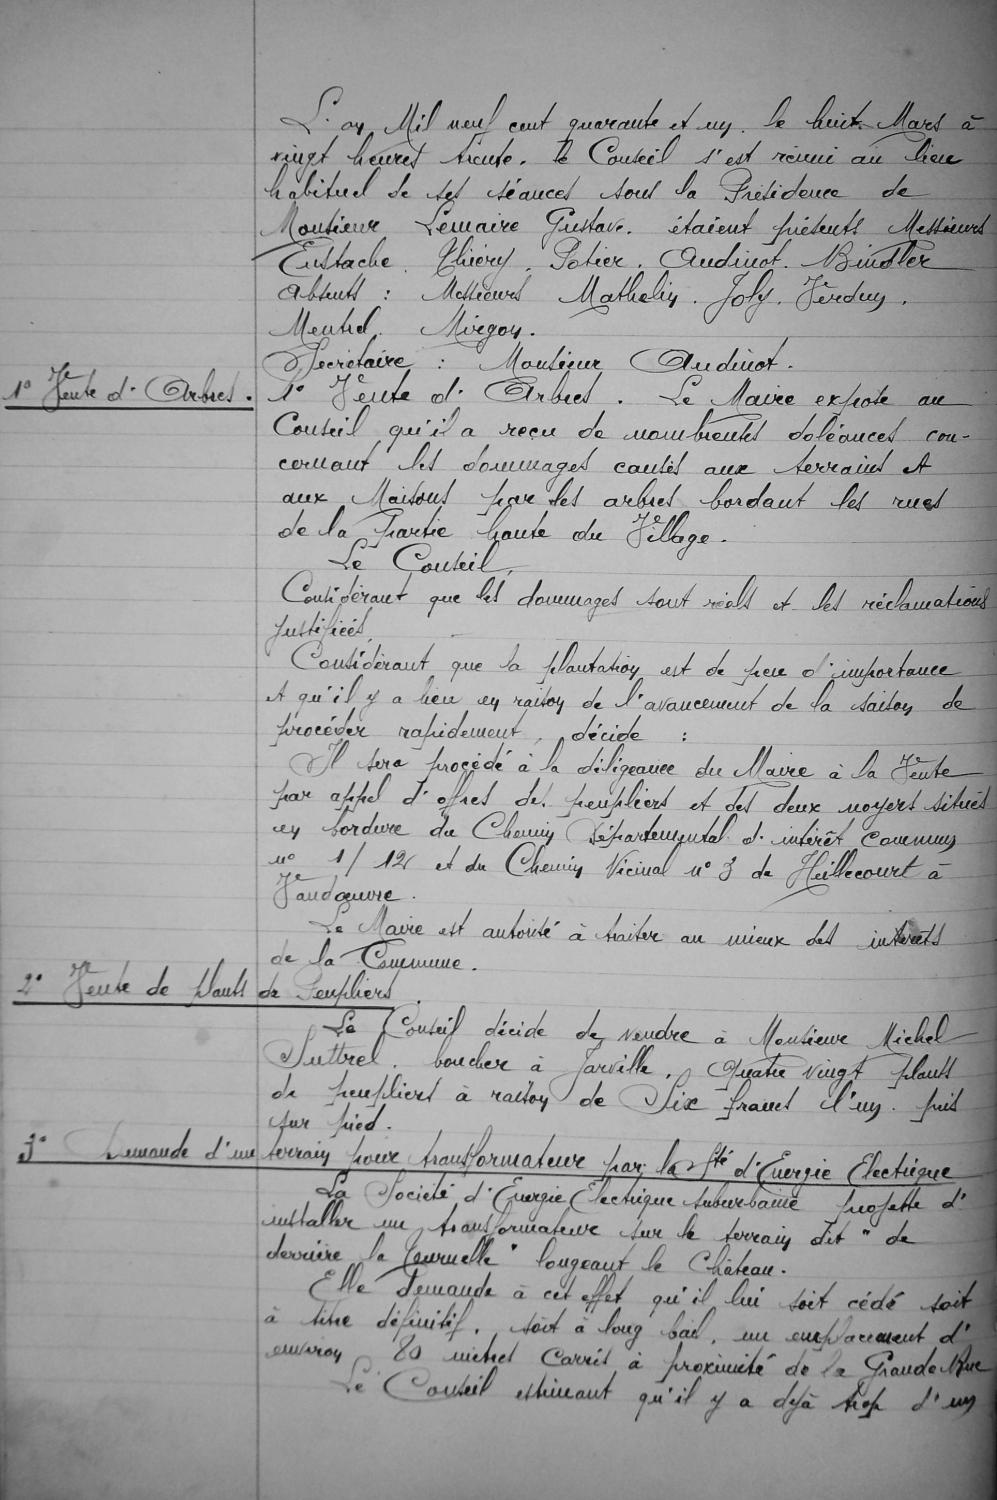 L'an Mil neuf cent quarante et un. le huit Mars à
vingt heures trente. le Conseil s'est réuni au lieu
habituel de ses séances sous la Présidence de
Monsieur Lemaire Gustave. étaient présents Messieurs
Eustache. Thiéry. Potier. Audinot. Bindler
Absents : Messieurs Mathelin. Joly. Verdun.
Mentrel. Mirgon.
Secrétaire : Monsieur Audinot.
1° Vente d'Arbres.
1° Vente d'Arbres. Le Maire expose au
Conseil qu'il a reçu de nombreuses doléances con-
cernant les dommages causés aux terrains et
aux Maisons par les arbres bordant les rues
de la partie haute du Village.
Le Conseil,
Considérant que les dommages sont réels et les réclamations
justifiées,
Considérant que la plantation est de peu d'importance
et qu'il y a lieu en raison de l'avancement de la saison de
procéder rapidement, décide :
Il sera procédé à la diligeance du Maire à la Vente
par appel d'offres des peupliers et des deux noyers situés
en bordure du Chemin Départemental d'intérêt commun
n° 1/12 et du Chemin Vicinal n° 3 de Heillecourt à
Vandœuvre.
Le Maire est autorisé à traiter au mieux des intérêts
de la Commune.
2° Vente de plants de Peupliers.
Le Conseil décide de vendre à Monsieur Michel
boucher à Jarville, Quatre vingt plants
de peupliers à raison de Six francs l'un. pris
sur pied.
3° Demande d'un terrain pour transformateur par la Sté d'Energie Electrique
La Société d'Energie Electrique suburbaine projette d'
installer un transformateur sur le terrain dit "de
derrière la Tournelle" longeant le Château.
Elle demande à cet effet qu'il lui soit cédé soit
à titre définitif, soit à long bail, un emplacement d'
environ 80 mètres carrés à proximité de la Grande Rue
Le Conseil estimant qu'il y a déjà trop d'un